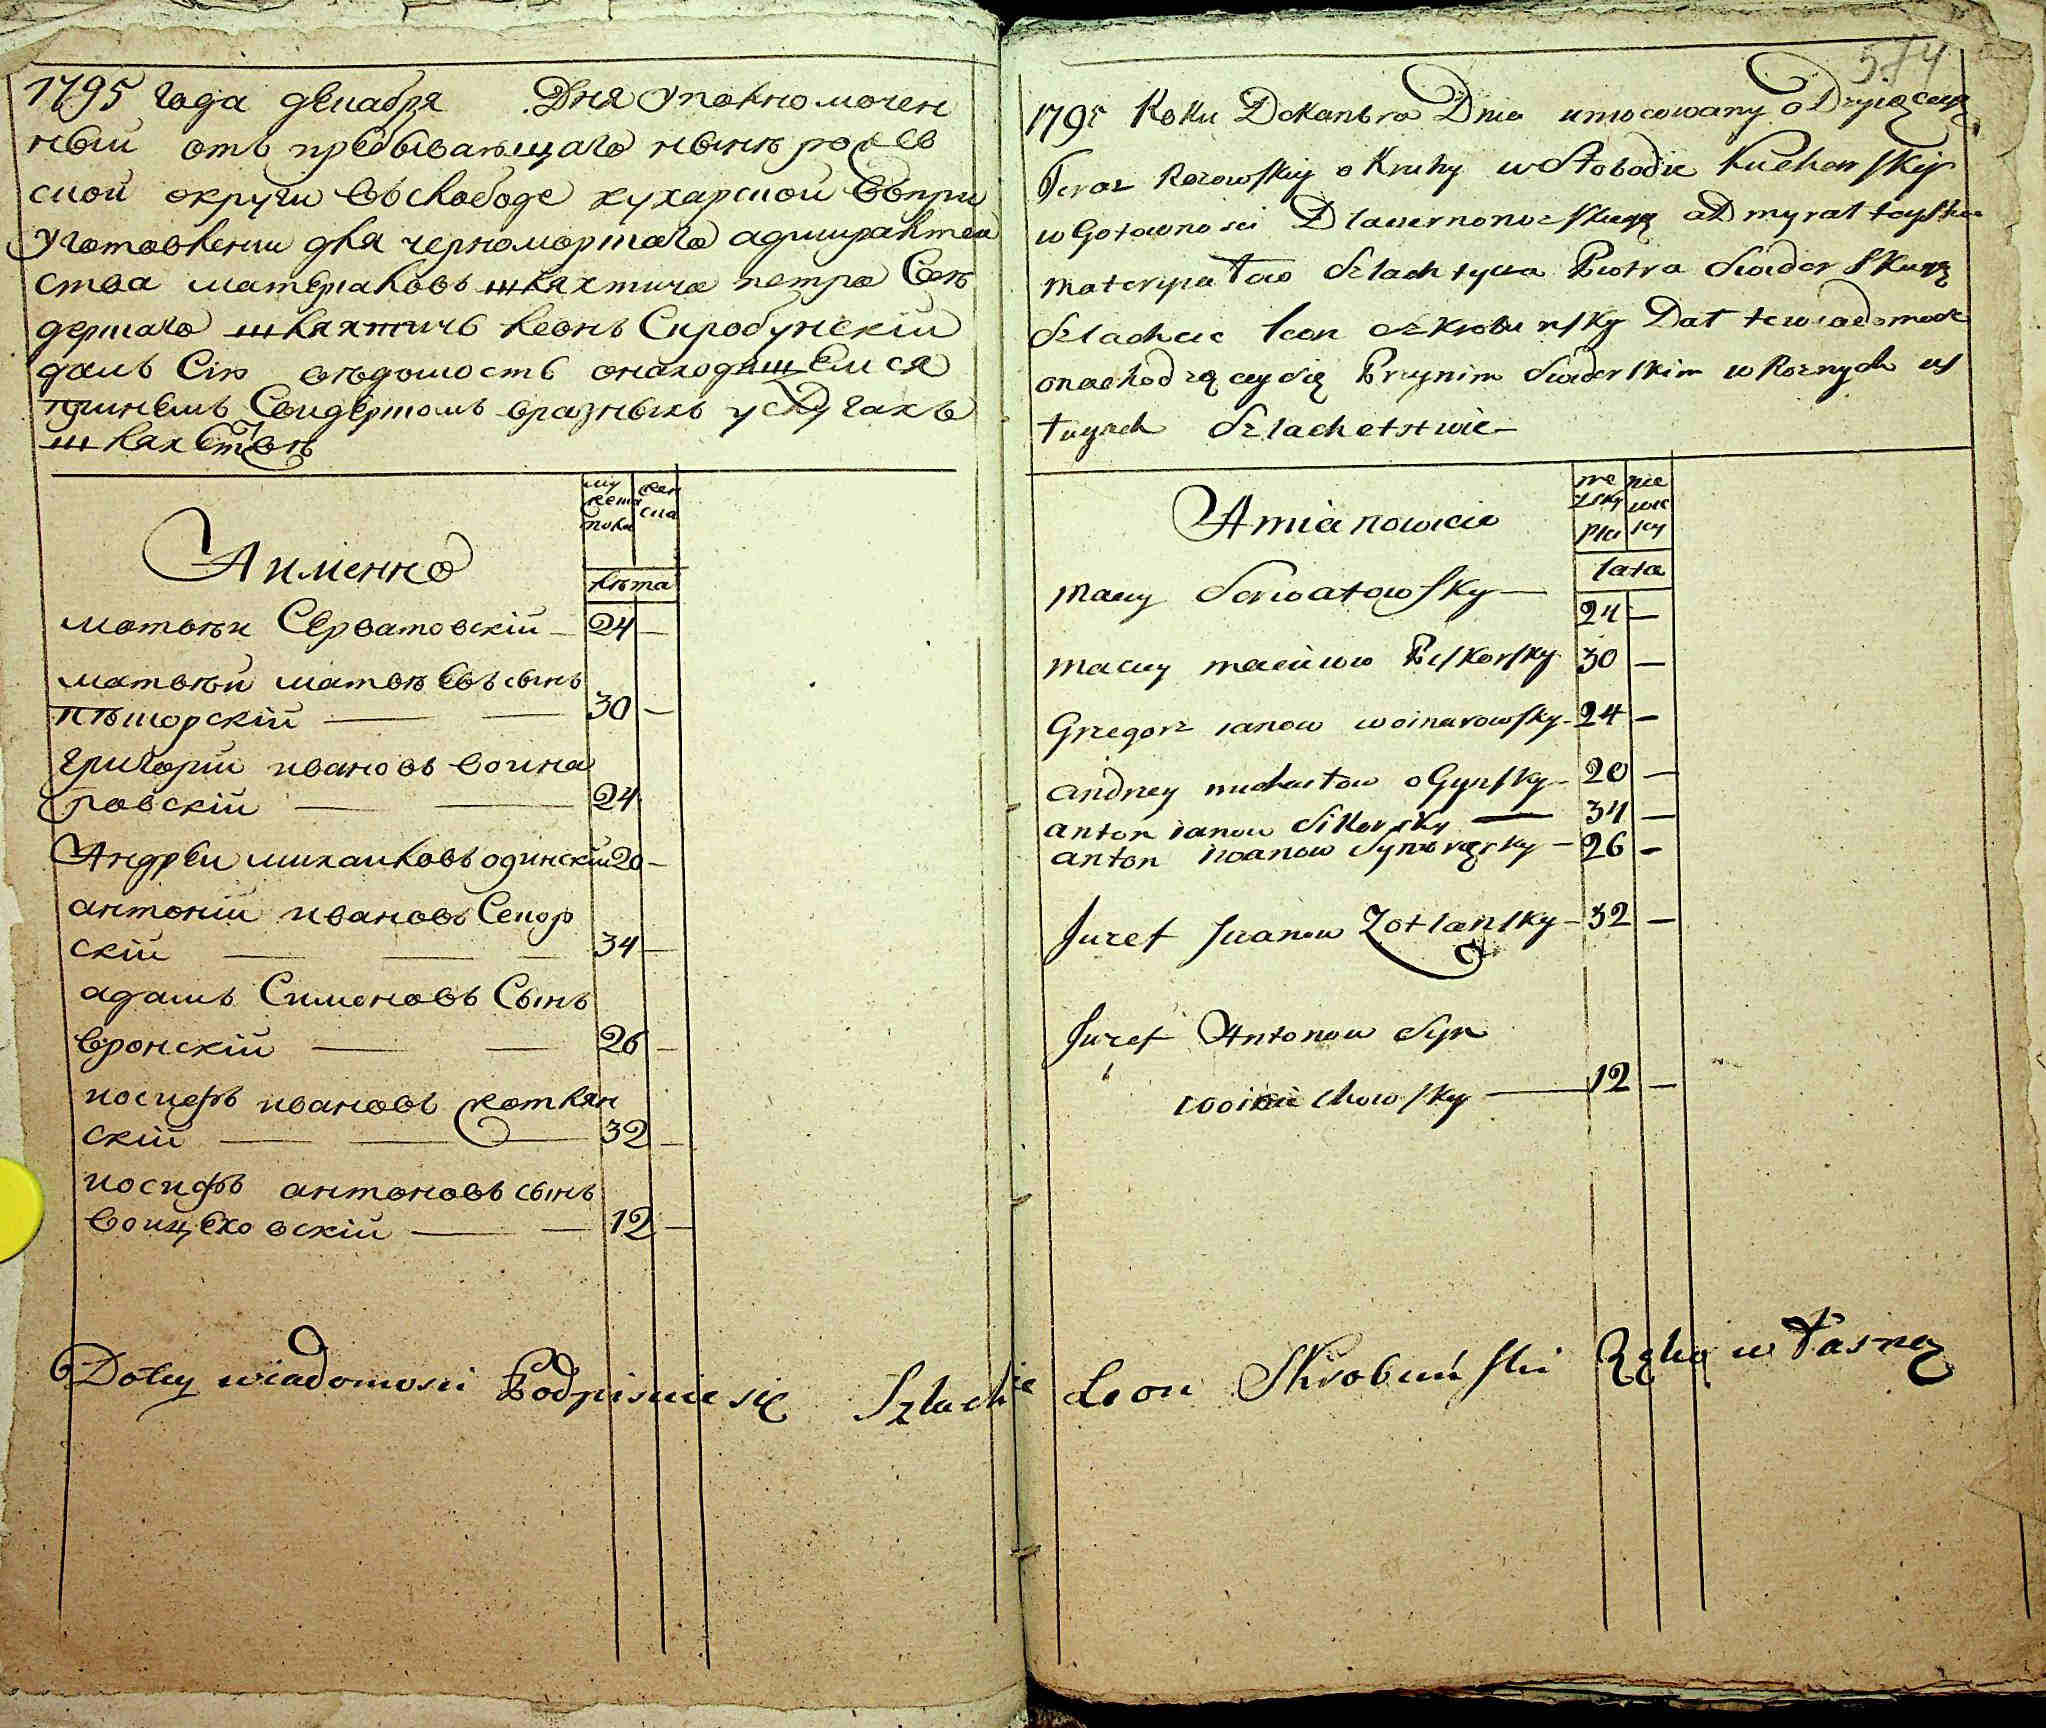 1795 года декабря Дня Уполномочен
ный отъ пребывающаго нынѣ
ской округи въ слободе кухарской въ при
уготовлении для черноморскаго адмиралтей
ства материаловъ шляхтича петра Свѣ
дерскаго шляхтичъ леонъ Скробунскій
далъ Сію вѣдомость онаходящемся
при немъ Свидерскомъ вразныхъ услугахъ
шляхетствѣ
му жеска пола
жен ска
А именно
лѣта
матвѣи Серватовскій - 24 -
матвѣй матвѣевъ сынъ
пѣкорскій - 30 -
григорій ивановъ воина
ровскій - 24
Андреи михаиловъ огинскій 20 -
антоній ивановъ Сикор
скій - 34 -
адамъ Симоновъ Сынъ
вронскій - 26 -
иосифъ ивановъ жотлян
скій - 32 -
иосифъ антоновъ сынъ
воицеховскій - 12 -
574
1795 Roku Dekanbra Dnia umocowany o
Teraz Rozowskiy o Kruhy w Slobodie Kucharskiy
w Gotownosci Dla admyralteystwa
materyalow Szlachtycza Piotra Swiderskiego
Szlachcic Leon Szkrobunsky Dał te wiadomosc
o nachodzącey się Przynim Swiderskim w Roznych us
lugach Szlachetstwie
Amianowicie
męzsky plci
niewiescy
lata
maciy Serwatowsky - 24 -
maciy maciiow Piskorsky 30 -
Grzegorz ianow woinarowsky - 24 -
andrzey michaiłow oGynsky - 20 -
anton ianow Sikorsky - 34 -
anton iwanow - 26 -
Juzef Iwanow Zotlansky - 32 -
Juzef Antonow Syn
woiciechowsky - 12 -
Do tey wiadomosci Podpisuie się Szlachcic Leon Skrobuński Ręką własną